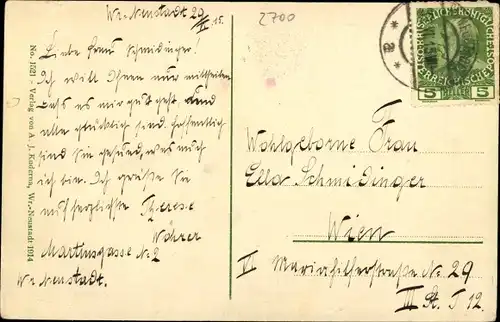 Wr. Neustadt 20/II 15.
2700
Liebe Frau Schmidinger!
Ich will Ihnen nur mitteilen
daß es mir gut geht. Und
alle glücklich sind. Hoffentlich
sind Sie gesund, was auch
ich bin. Ich grüße Sie
auf herzlichste Therese
Wöhrer
Martinsgasse № 2
Wr. Neustadt.
No. 1021 - Verlag von A. J. Kuderna, Wr.-Neustadt 1914
KAISERLICHKÖNIGLICHE ÖSTERREICHISCHE
5 HELLER 5
* a *
Wohlgeborne Frau
Ella Schmidinger
Wien
VI Mariahilferstraße № 29
III St. T 12.